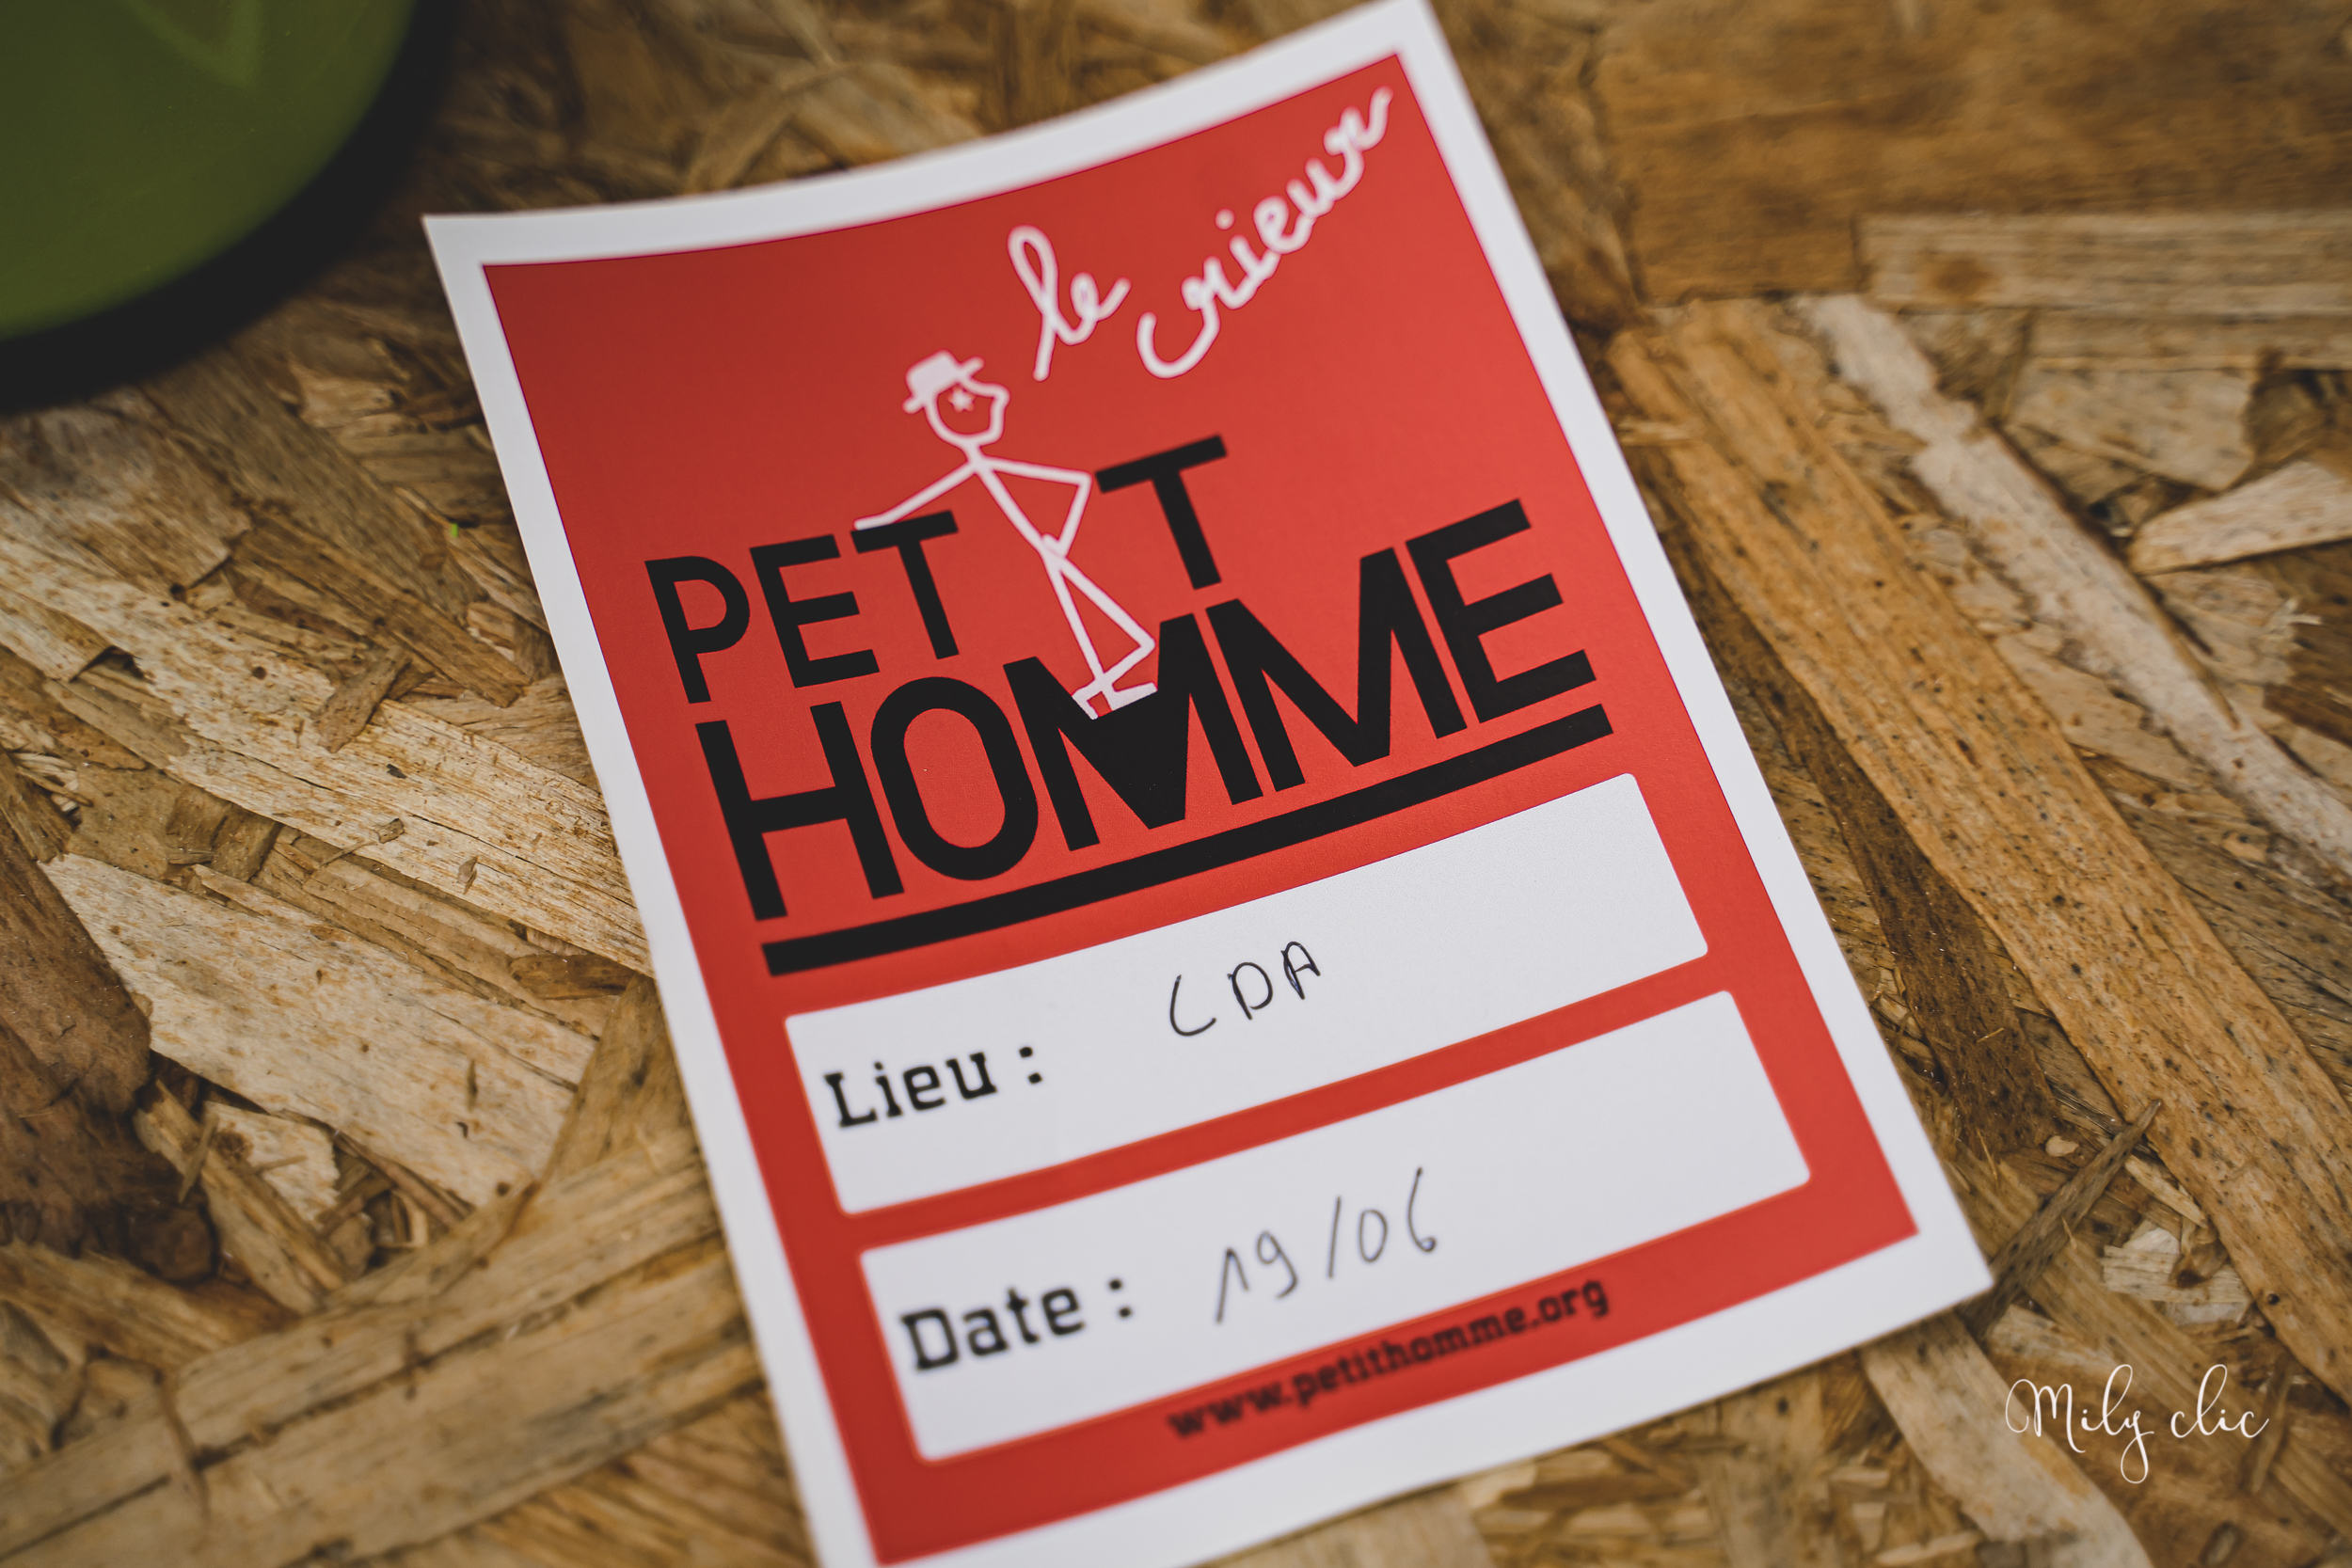 le crieur
PETIT
HOMME
Lieu : CDA
Date : 19/06
www.petithomme.org
Mily clic